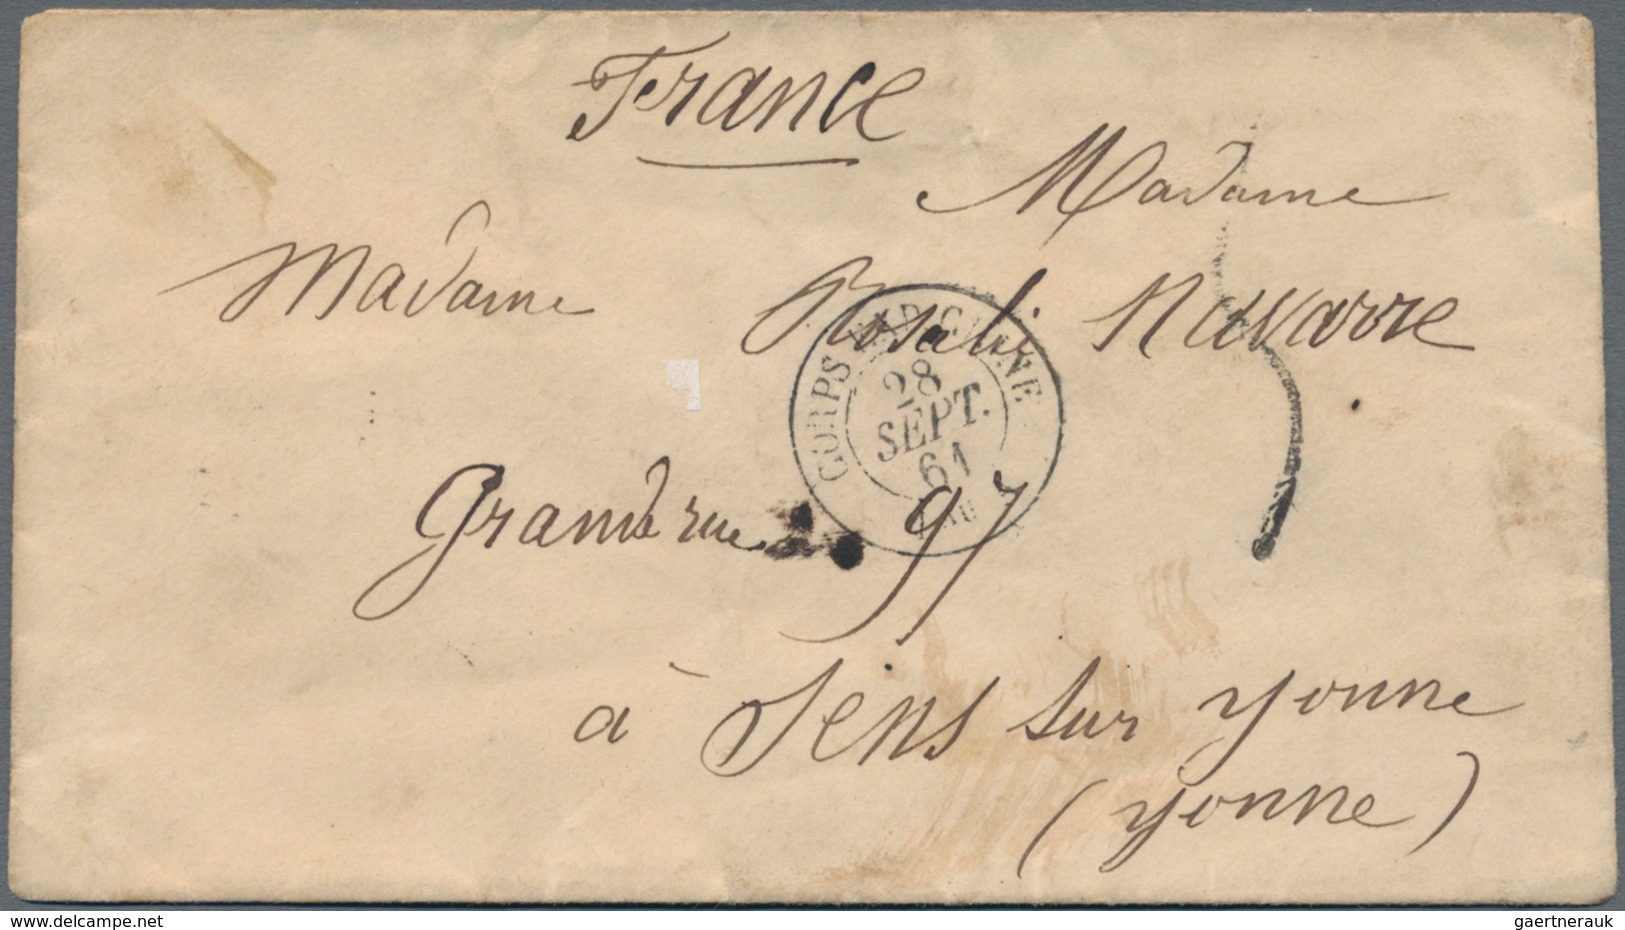 France
Madame
Madame
Rosalie Navarre
CORPS EXP. CHINE
28
SEPT.
61
Grande rue 97
à Sens sur yonne
(yonne)
delcampe.net
gaertnerauk